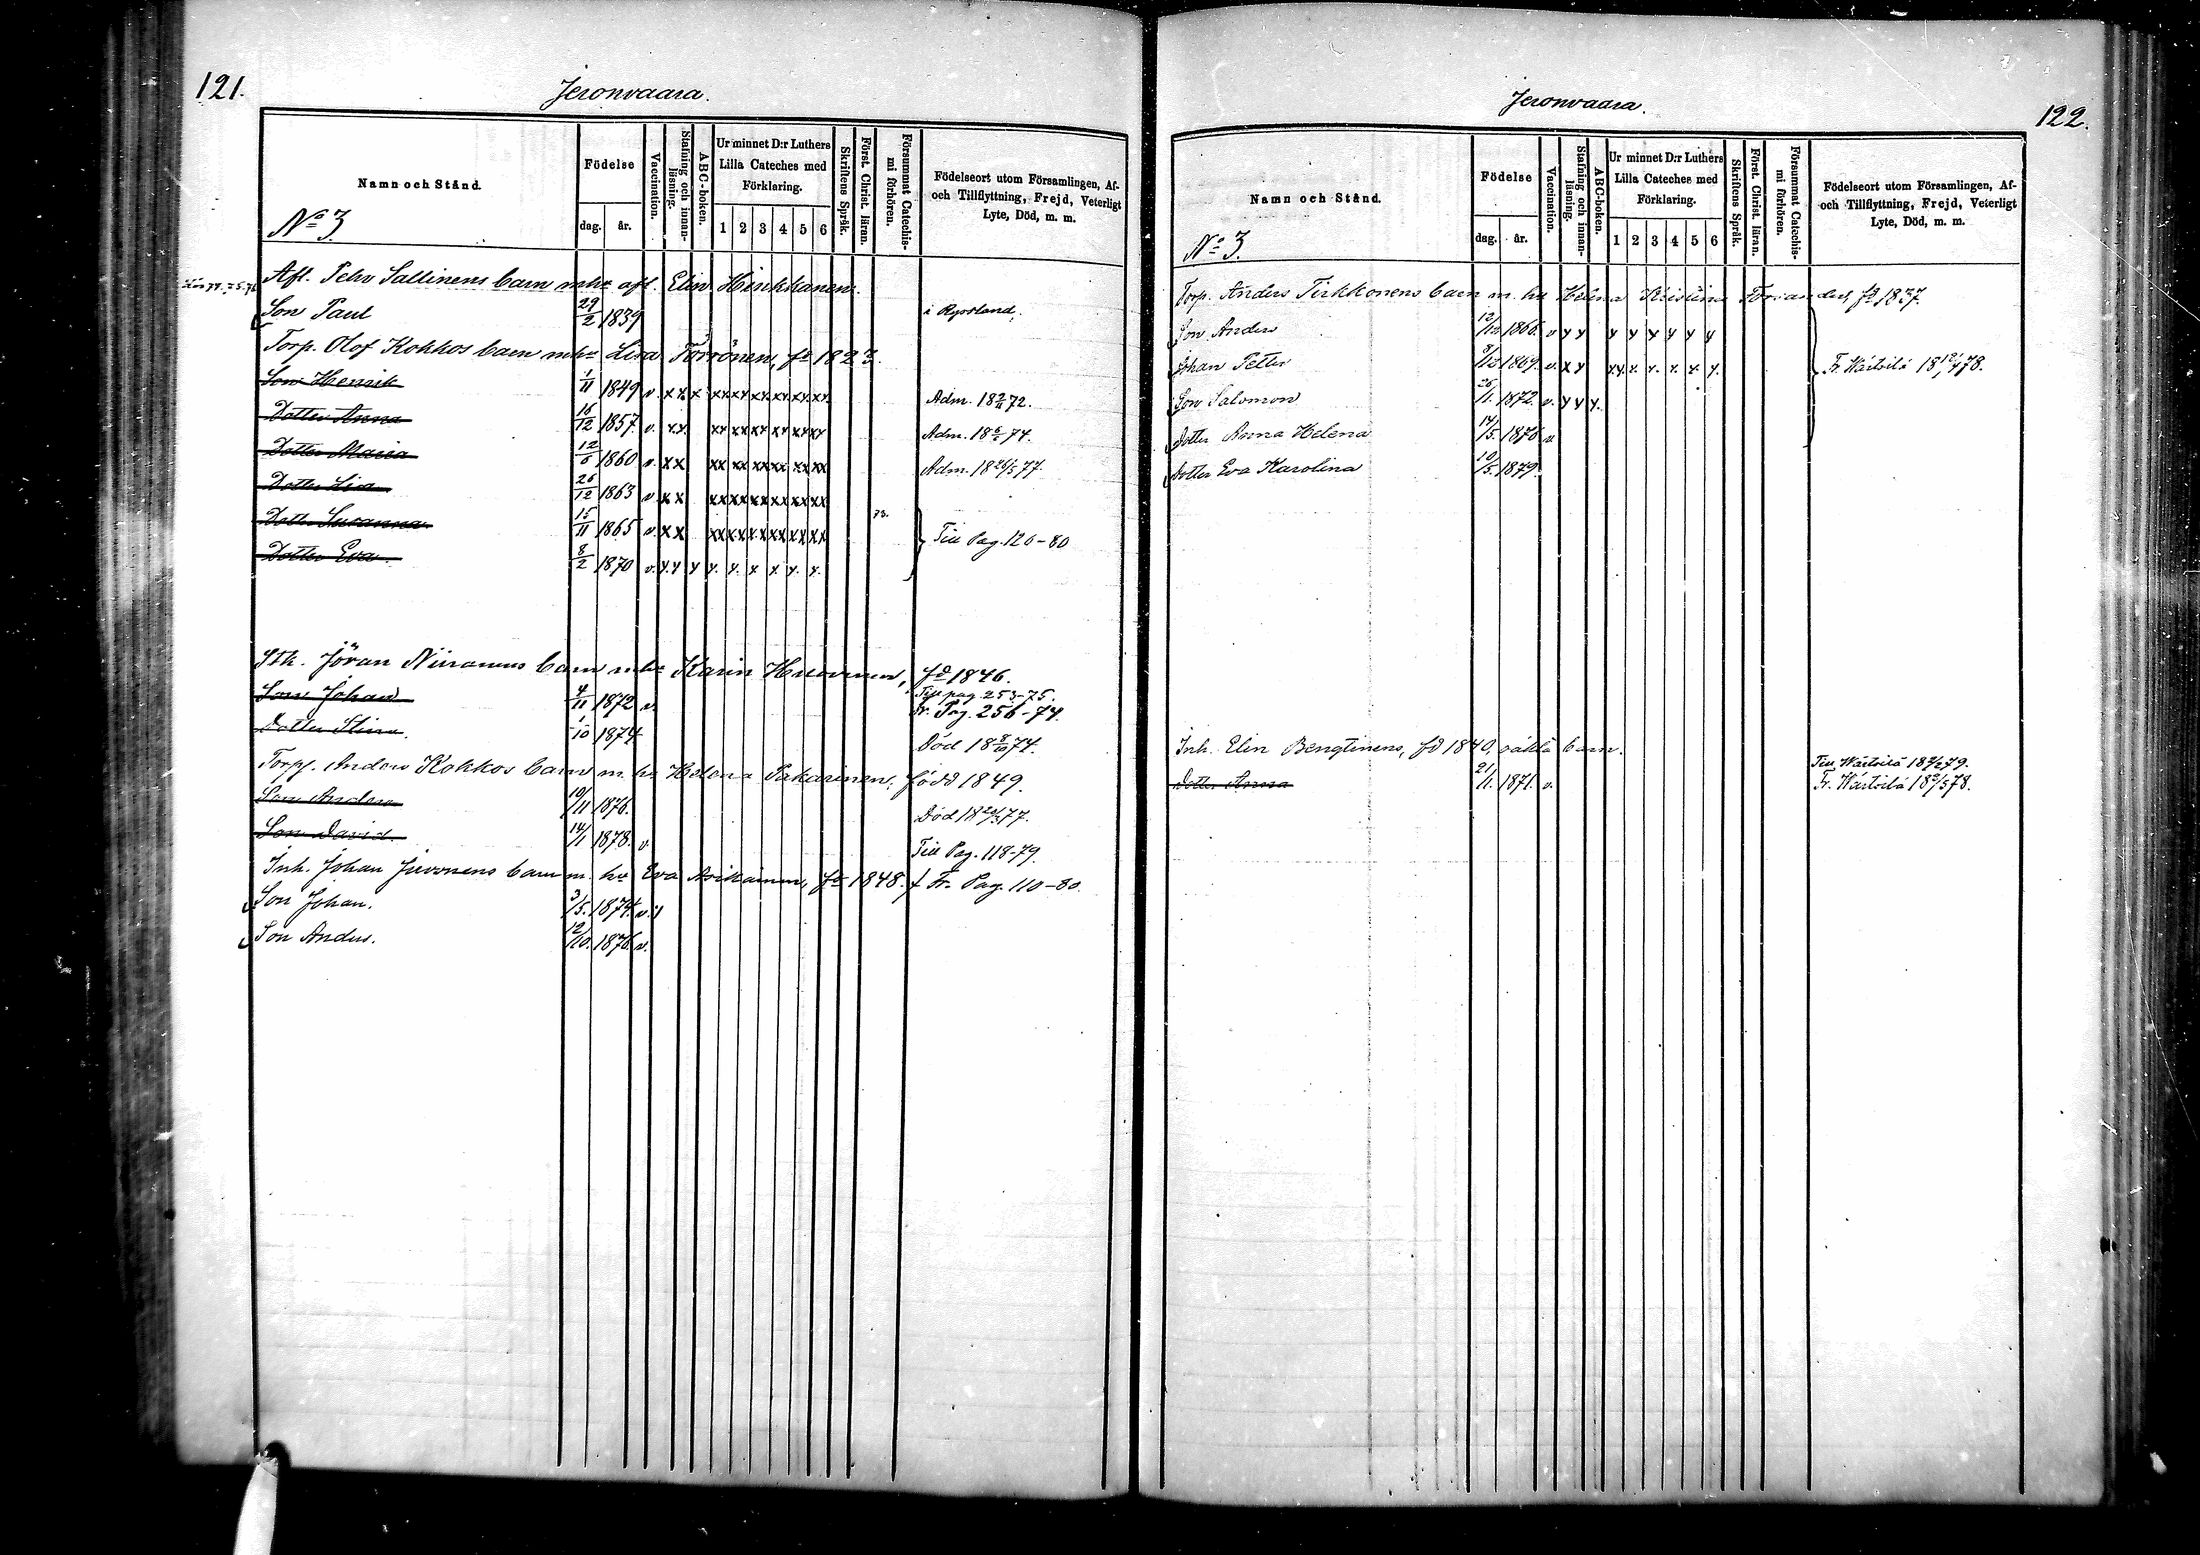 121.
Jeronvaara.
Namn och Stånd.
Födelse
dag.
år.
Vaccination.
Stafning och innanläsning.
ABC-boken.
Ur minnet D:r Luthers
Lilla Cateches med
Förklaring.
1 2 3 4 5 6
Skriftens Språk.
Först. Christ. läran.
Försummat Catechismi förhören.
Födelseort utom Församlingen, Af-
och Tillflyttning, Frejd, Veterligt
Lyte, Död, m. m.
No 3.
Afl. Pehr Sallinens barn m hu afl. Elin Hirskkanen.
Son Paul 29/2 1839 i Ryssland.
Torp. Olof Kokkos barn m hu Lisa Torrönen, fd 1823.
Son Henrik 1/11 1849 v. x x x xx xx xx xx xx xx Adm. 18 2/11 72.
Dotter Anna 16/12 1857. v. x x xx xx xx xx xx xx Adm. 18 74.
Dotter Maria 12/6 1860 v. x x xx xx xx xx xx xx Adm. 18 26/5 77.
Dotter Lisa 26/12 1863 v x x xx xx xx xx xx xx
73.
Dotter Susanna 15/11 1865 v. x x xx xx xx xx xx xx Till Pag. 120-80
Dotter Eva 8/2 1870 v. x x x x. x. x x x. x.
Sth. Jöran Niiranens barn m hu Karin Huovinen, fd 1846.
Till pag. 253-75.
Son Johan 4/11 1872 v. Fr. Pag. 256-74.
Dotter Stina. 1/10 1874 Död 18 8/10 74.
Torp. Anders Kokkos barn m. hu Helena Pakarinen, född 1849.
Son Anders 10/11 1876. Död 18 77.
Son David. 14/1 1878. v. Till Pag. 118-79.
Inh. Johan Juvonens barn m. hu Eva fd 1848. Fr. Pag. 110-80.
Son Johan. 3/5. 1874. v.
Son Anders. 12/10. 1876. v.
122.
Jeronvaara.
Namn och Stånd.
Födelse
dag.
år.
Vaccination.
Stafning och innanläsning.
ABC-boken.
Ur minnet D:r Luthers
Lilla Cateches med
Förklaring.
1 2 3 4 5 6
Skriftens Språk.
Först. Christ. läran.
Försummat Catechismi förhören.
Födelseort utom Församlingen, Af-
och Tillflyttning, Frejd, Veterligt
Lyte, Död, m. m.
No 3.
Torp. Anders Tirkkonens barn m. hu Helena Kristina fd 1837.
Son Anders 12/12 1866. v x x x x x x x x
Johan Petter 8/12 1869. v. x x xx x. x. x. x. x. Fr. Wärtsilä 18 78.
Son Salomon 26/1. 1872. v. x x x.
Dotter Anna Helena 14/5. 1876 v
Dotter Eva Karolina 10/5. 1879.
Inh. Elin Bengtinens, fd 1840, oäkta barn.
Till Wärtsilä 18 79.
Dotter Anna 21/11. 1871. v. Fr. Wärtsilä 18 78.